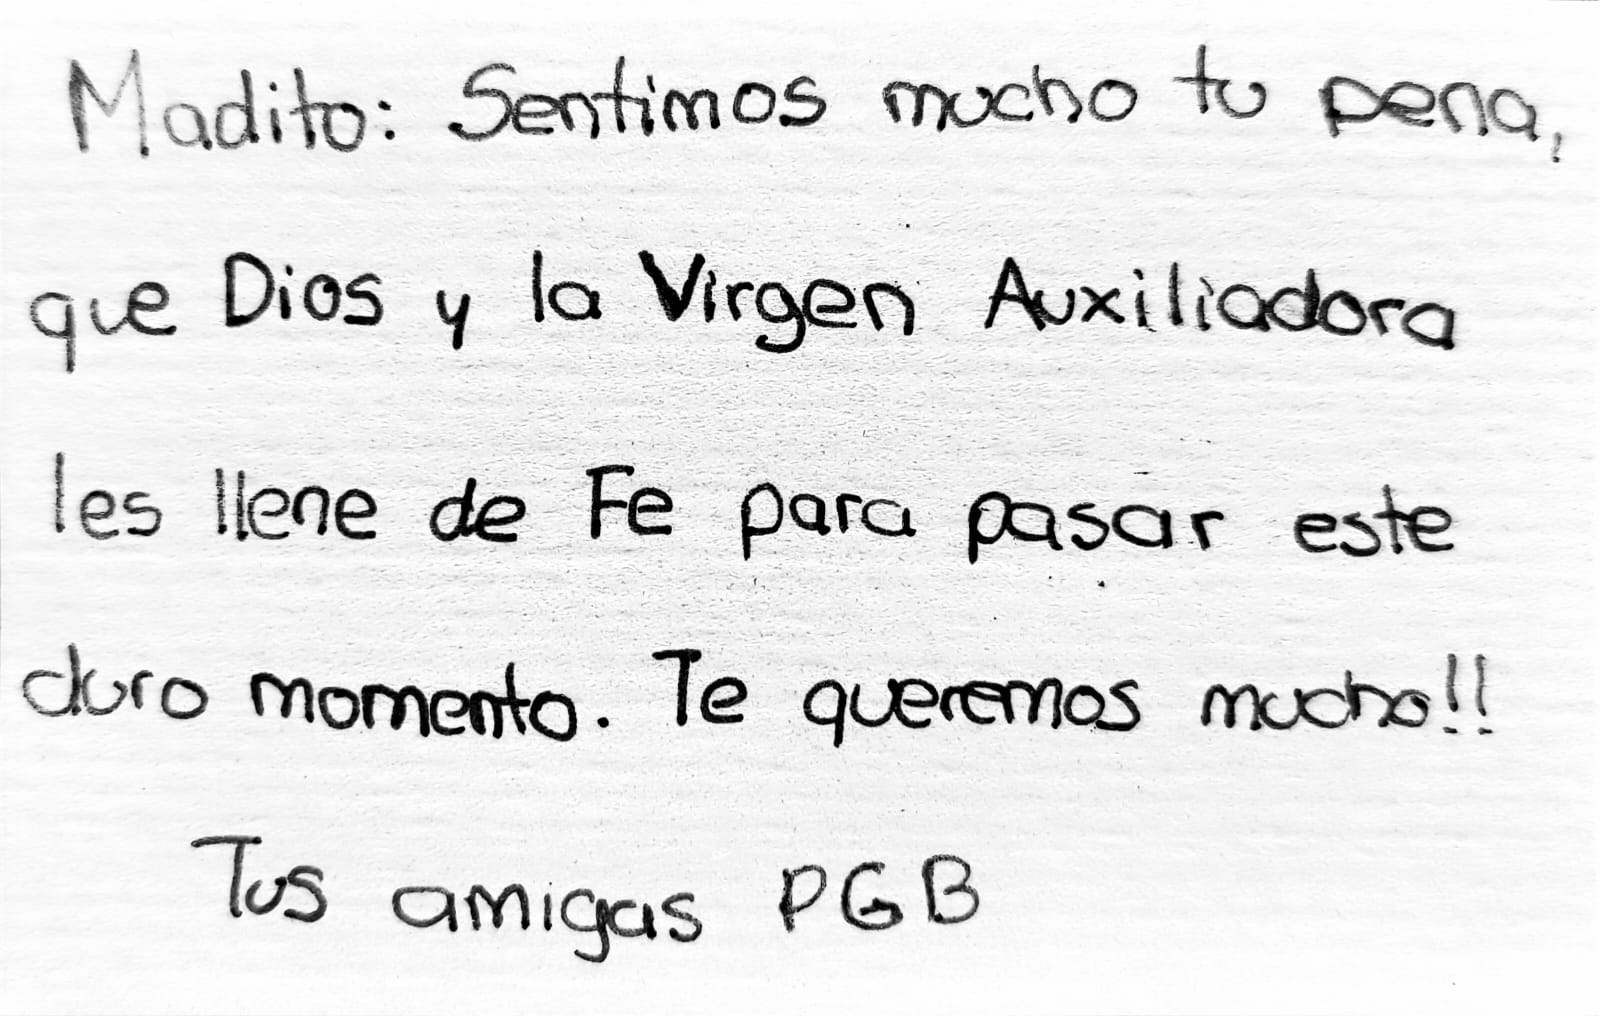 Madito: Sentimos mucho tu pena,
que Dios y la Virgen Auxiliadora
les llene de Fe para pasar este
duro momento. Te queremos mucho!!
Tus amigas PGB